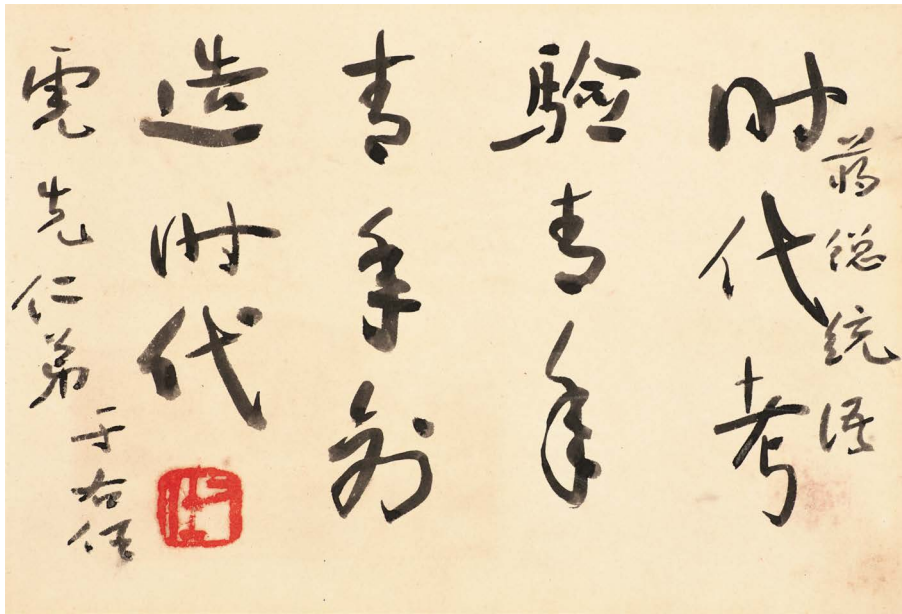 蔣總統語
時代考
驗青年
青年創
造時代
霓先仁弟
于右任
右任